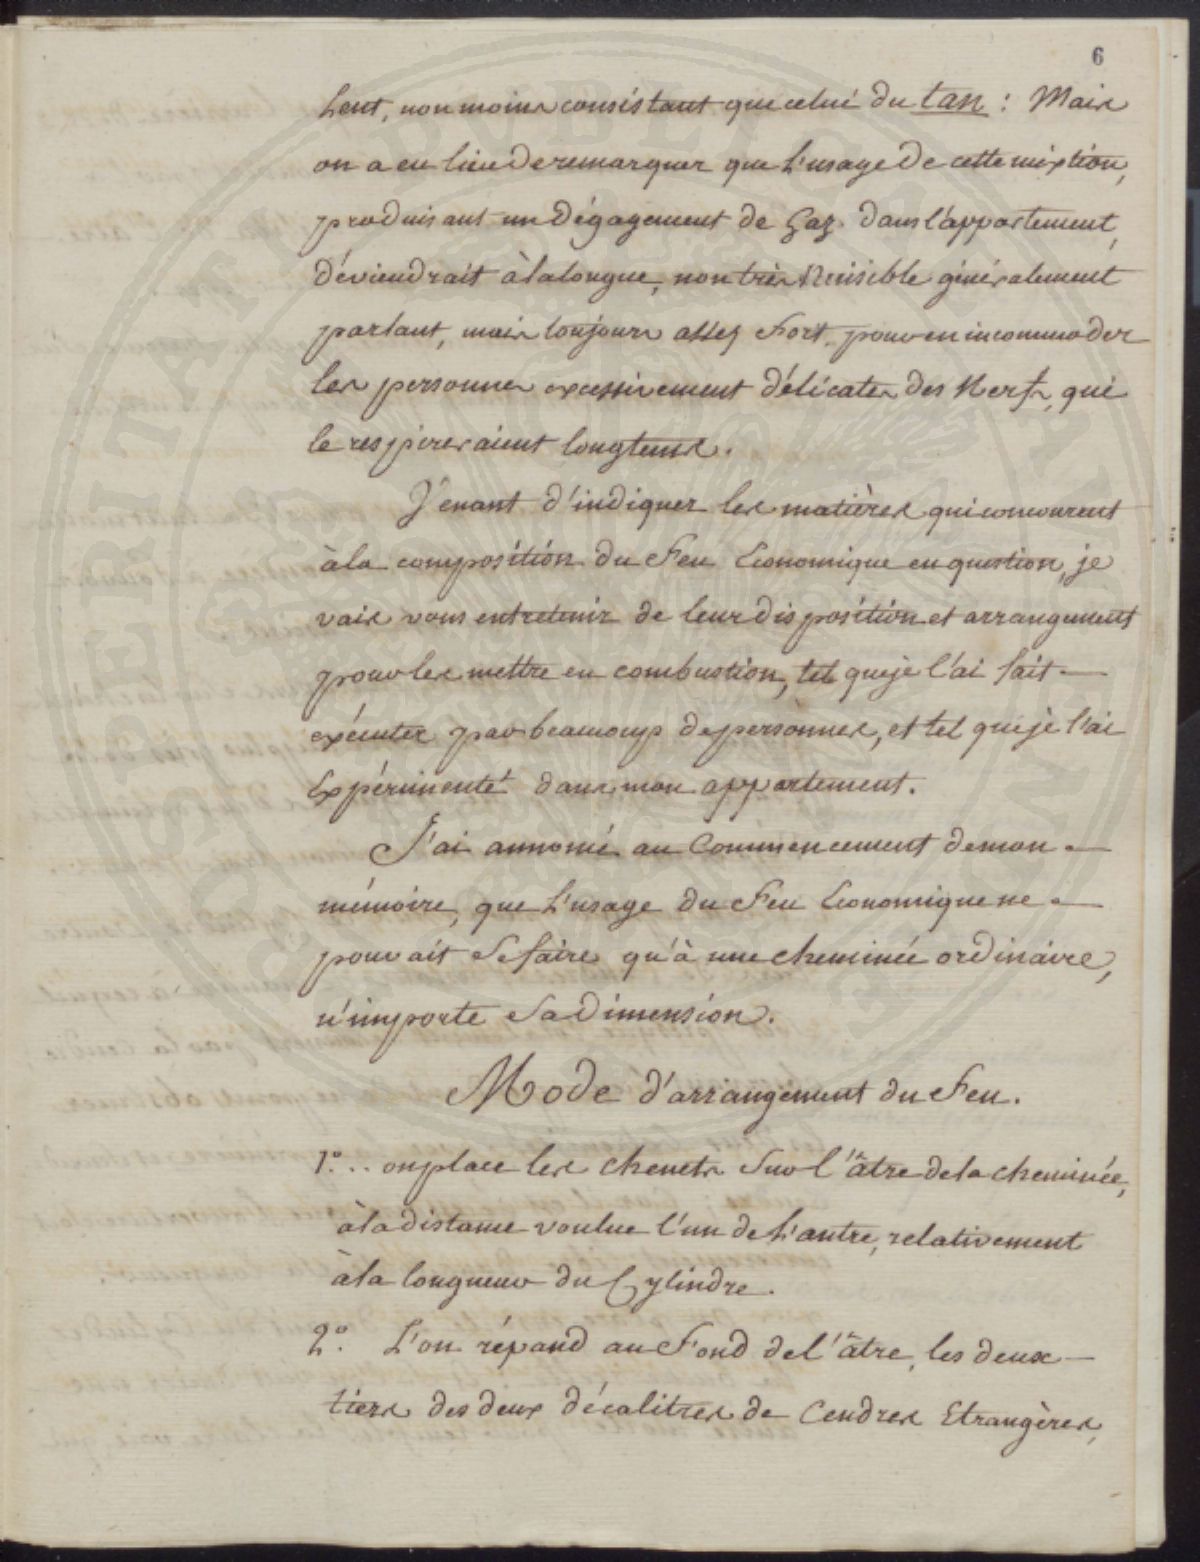 6
Lent, non moins consistant que celui du tan : Mais
on a eu lieu de remarquer que L'usage de cette mixtion,
produisant un Dégagement de Gaz dans l'appartement,
déviendrait à la longue, non très Nuisible généralement
parlant, mais toujours assez Fort, pour en incommoder
les personnes excessivement délicates des Nerfs, qui
le respireraient longtems.
Venant d'indiquer les matières qui concourent
à la composition du Feu Economique en question, je
vais vous entretenir de leur disposition et arrangement
pour les mettre en combustion, tel que je l'ai fait
exécuter par beaucoup de personnes, et tel que je l'ai
Expérimenté dans mon appartement.
J'ai annoncé au Commencement de mon
mémoire, que L'usage du Feu Economique ne
pouvait Se faire qu'à une cheminée ordinaire,
n'importe Sa Dimension.
Mode d'arrangement du Feu.
1º.. on place les chenets Sur l'âtre de la cheminée,
à la distance voulue l'un de L'autre, relativement
à la longueur du Cylindre.
2º. L'on répand au Fond de l'âtre, les deux
tiers des deux décalitres de Cendres Etrangères,